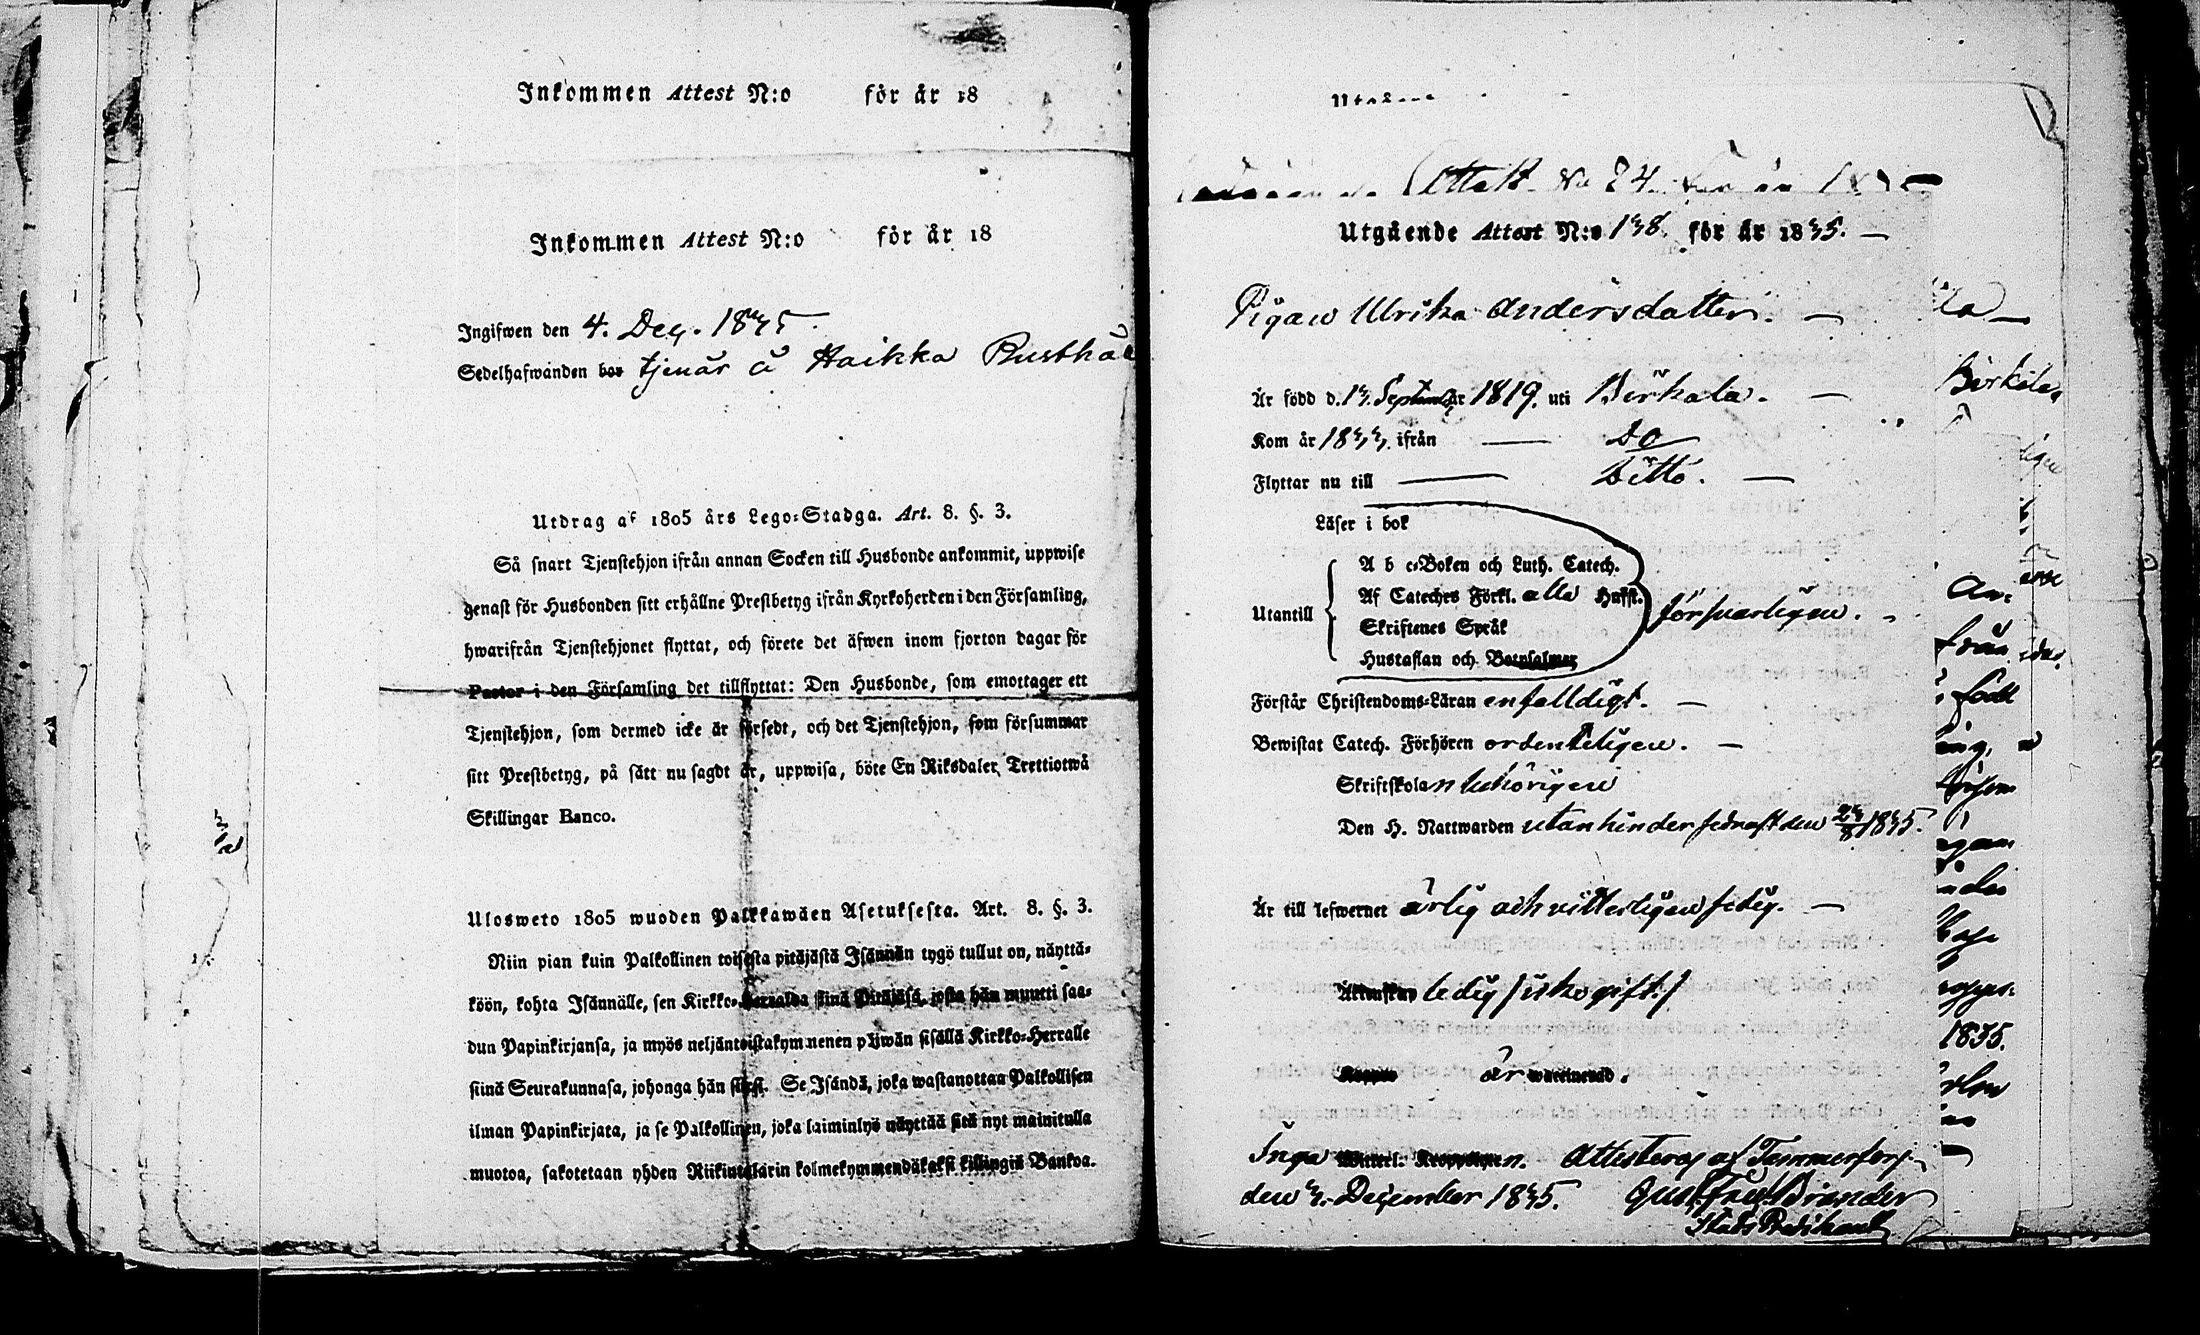 Inkommen Attest N:o för år 18
Inkommen Attest N:o för år 18
Ingifwen den 4. Dec. 1835.
Sedelhafwanden bor tjenar å Haikka Rusthål
Utdrag af 1805 års Lego-Stadga. Art. 8. §. 3.
Så snart Tjenstehjon ifrån annan Socken till Husbonde ankommit, uppwise
genast för Husbonden sitt erhållne Prestbetyg ifrån Kyrkoherden i den Församling,
hwarifrån Tjenstehjonet flyttat, och förete det äfwen inom fjorton dagar för
Pastor i den Församling det tillflyttat: Den Husbonde, som emottager ett
Tjenstehjon, som dermed icke är försedt, och det Tjenstehjon, som försummar
sitt Prestbetyg, på sätt nu sagdt är, uppwisa, böte En Riksdaler Trettiotwå
Skillingar Banco.
Ulosweto 1805 wuoden Palkkawäen Asetuksesta. Art. 8. §. 3.
Niin pian kuin Palkollinen toisesta pitäjästä Isännän tygö tullut on, näyttä-
köön, kohta Isännälle, sen Kirkko-Herralda siinä Pitäjäsä, josta hän muutti saa-
dun Papinkirjansa, ja myös neljäntoistakymmenen päiwän sisällä Kirkko-Herralle
siinä Seurakunnasa, johonga hän siirsi. Se Isändä, joka wastanottaa Palkollisen
ilman Papinkirjata, ja se Palkollinen, joka laiminlyö näyttää sitä nyt mainitulla
muotoa, sakotetaan yhden Riikintalarin kolmekymmendäkaksi killingiä Bankoa.
Attest No 24 för år
Utgående Attest N:o 138. för år 1835.
Pigan Ulrika Andersdotter.
Är född d. 13. September 1819. uti Birkala.
Kom år 1833. ifrån Do
Flyttar nu till Ditto.
Läser i bok
A b c-Boken och Luth. Catech.
Af Cateches Förkl. alla Hufst.
Utantill försvarligen.
Skriftenes Språk
Hustaflan och Botpsalmer
Förstår Christendoms-Läran enfalldigt.
Bewistat Catech. Förhören ordenteligen.
Skriftskolan behörigen
Den H. Nattwarden utan hinder sednast den 23/8 1835.
Är till lefwernet ärlig och vitterligen sedig.
Äktenskap ledig /icke gift./
Koppor är waccinerad.
Inga n. Attesteras af Tammerfors
den 3. December 1835. Gust. Fred. Brander
Stads Predikant
Birkala
från
född
1835.